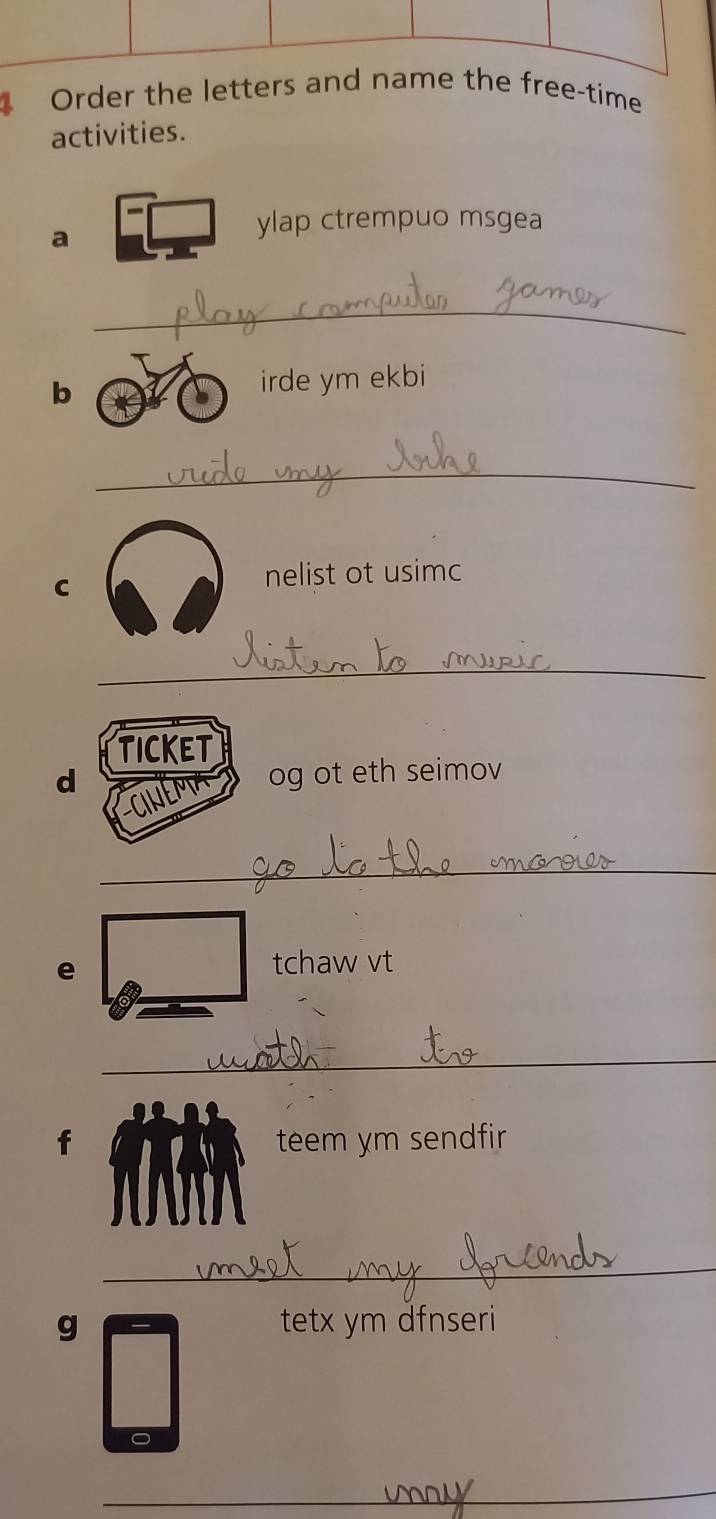 4 Order the letters and name the free-time
activities.
a ylap ctrempuo msgea
play computer games
b irde ym ekbi
ride my bike
c nelist ot usimc
listen to music
TICKET
-CINEMA
d og ot eth seimov
go to the movies
e tchaw vt
wathc tv
f teem ym sendfir
meet my friends
g tetx ym dfnseri
my